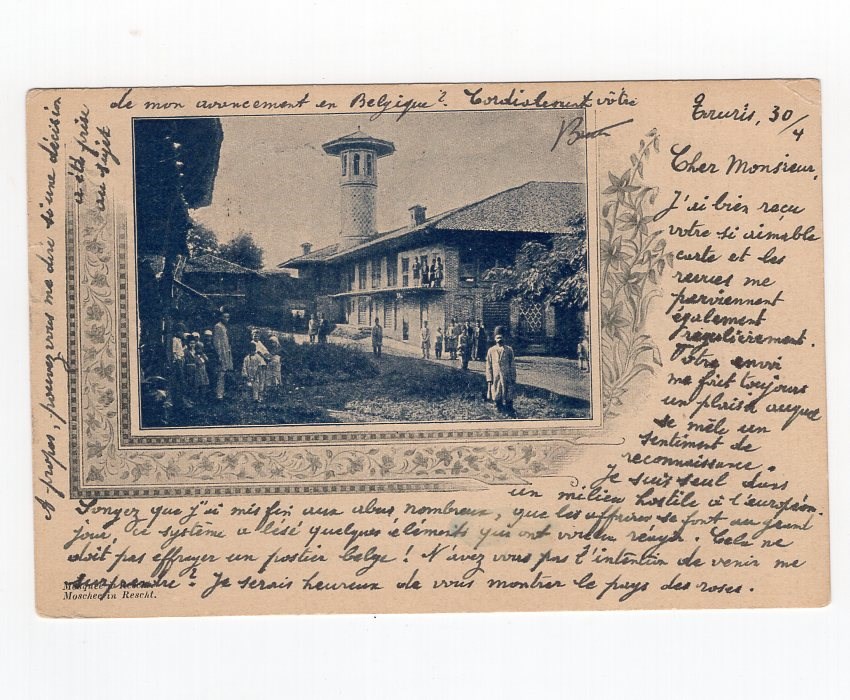 Tauris, 30/4
Cher Monsieur,
J'ai bien reçu
votre si aimable
carte et les
revues me
parviennent
également
régulièrement.
Votre envoi
me fait toujours
un plaisir auquel
se mêle un
sentiment de
reconnaissance.
Je suis seul dans
un milieu hostile à l'européen.
Songez que j'ai mis fin aux abus nombreux, que les affaires se font au grand
jour, ce système a lésé quelques éléments qui ont voulu
Cela ne
doit pas effrayer un postier belge! N'avez vous pas l'intention de venir me
surprendre? Je serais heureux de vous montrer le pays des roses.
A propos, pouvez vous me dire si une décision
a été prise
au sujet
de mon avancement en Belgique? Cordialement vôtre
Moschee in Rescht.